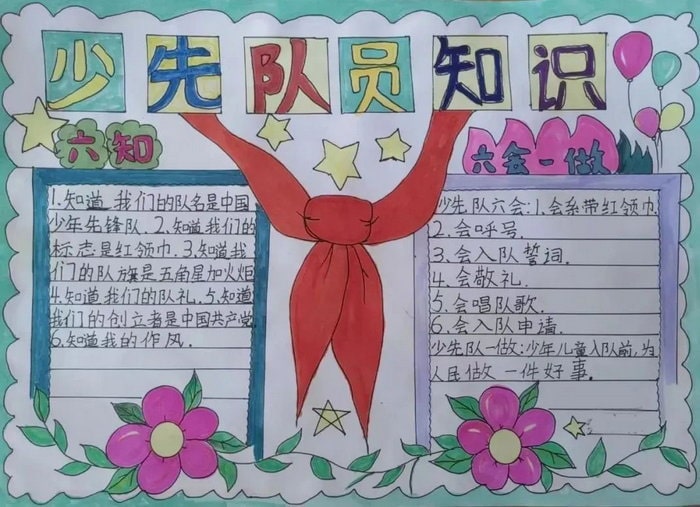 少先队员知识
六知
1.知道我们的队名是中国
少年先锋队.2.知道我们的
标志是红领巾.3.知道我
们的队旗是五角星加火炬
4.知道我们的队礼.5.知道
我们的创立者是中国共产党
6.知道我的作风.
六会一做
少先队六会:1.会系带红领巾.
2.会呼号.
3.会入队誓词.
4.会敬礼.
5.会唱队歌.
6.会入队申请.
少先队一做:少年儿童入队前,为
人民做一件好事.